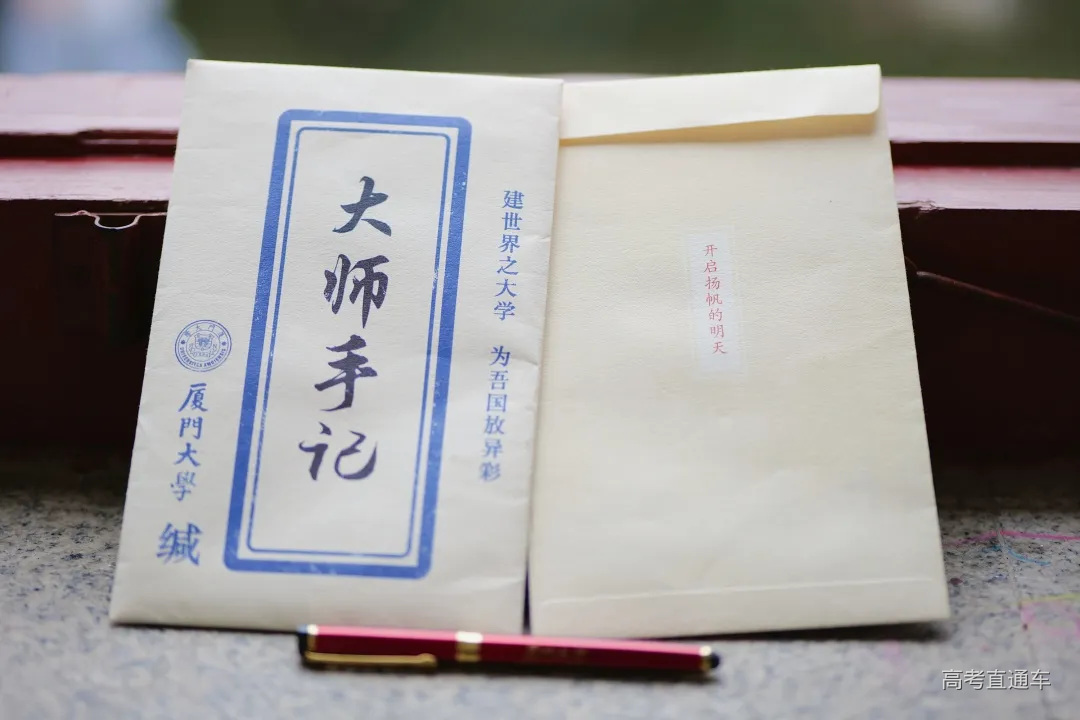 建世界之大学 为吾国放异彩
大师手记
厦門大學 缄
开启扬帆的明天
高考直通车